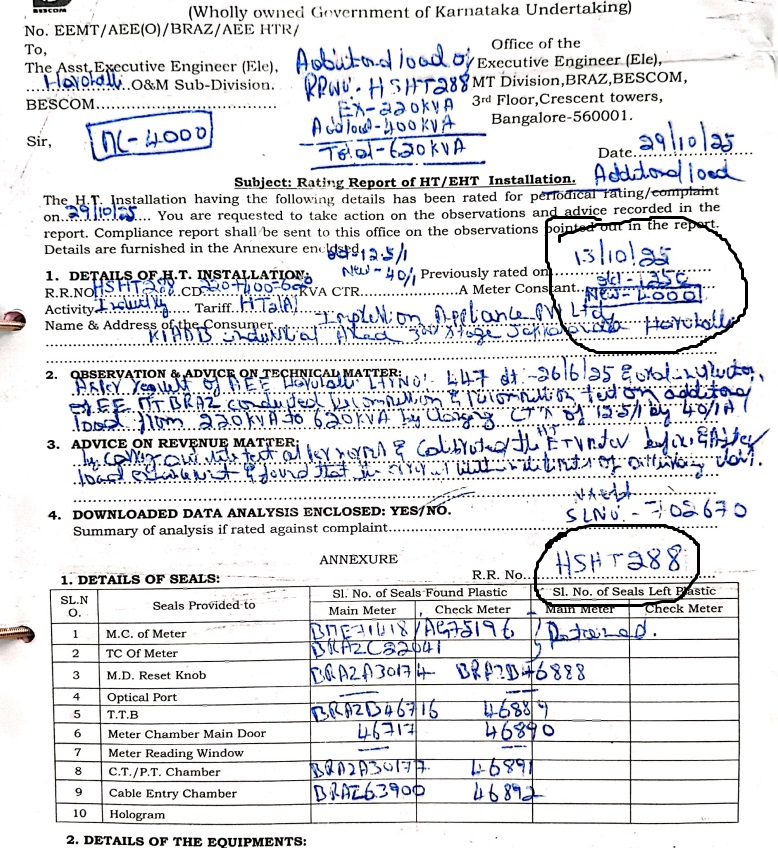 BESCOM
(Wholly owned Government of Karnataka Undertaking)
No. EEMT/AEE(O)/BRAZ/AEE HTR/
To,
The Asst,Executive Engineer (Ele),
Harohalli O&M Sub-Division.
BESCOM
Additional load of
RRNo:- HSHT288
Ex-220KVA
Add load-400KVA
Total-620KVA
Office of the
Executive Engineer (Ele),
MT Division,BRAZ,BESCOM,
3rd Floor,Crescent towers,
Bangalore-560001.
Sir,
MC-4000
Date 29/10/25
Subject: Rating Report of HT/EHT Installation. Additional load
The H.T. Installation having the following details has been rated for periodical rating/complaint
on 29/10/25 You are requested to take action on the observations and advice recorded in the
report. Compliance report shall be sent to this office on the observations pointed out in the report.
Details are furnished in the Annexure enclosed
old-12.5/1
New-40/1
13/10/25
1. DETAILS OF H.T. INSTALLATION; Previously rated on
old-1250
R.R.NO HSHT288 CD 220+400=620 KVA CTR A Meter Constant New-4000
Activity Industry Tariff HT2(A)
Name & Address of the Consumer Appliance Pvt Ltd
KIADB industrial Area 3rd Stage Harohalli
2. OBSERVATION & ADVICE ON TECHNICAL MATTER:
As per request of AEE Harohalli Lr No: 447 dt-26/6/25 & oral
of EE MT BRAZ conducted test on additional
load from 220KVA to 620KVA by changing CTR of 12.5/1 by 40/1A
3. ADVICE ON REVENUE MATTER;
by & Calibrated the HT ETV
load & found that the error is within the limits of
4. DOWNLOADED DATA ANALYSIS ENCLOSED: YES/NO.
Summary of analysis if rated against complaint
SLNo - 702670
ANNEXURE
R.R. No. HSHT288
1. DETAILS OF SEALS:
SL.N O. Seals Provided to Sl. No. of Seals Found Plastic Sl. No. of Seals Left Plastic
Main Meter Check Meter Main Meter Check Meter
1 M.C. of Meter BME71618/AG75196 Retained.
2 TC Of Meter BRAZC82041
3 M.D. Reset Knob BRAZA30174 BRAZD46888
4 Optical Port — —
5 T.T.B BRAZD46716 46889
6 Meter Chamber Main Door 46717 46890
7 Meter Reading Window — —
8 C.T./P.T. Chamber BRAZA30177 46891
9 Cable Entry Chamber BRAZ63900 46892
10 Hologram
2. DETAILS OF THE EQUIPMENTS: